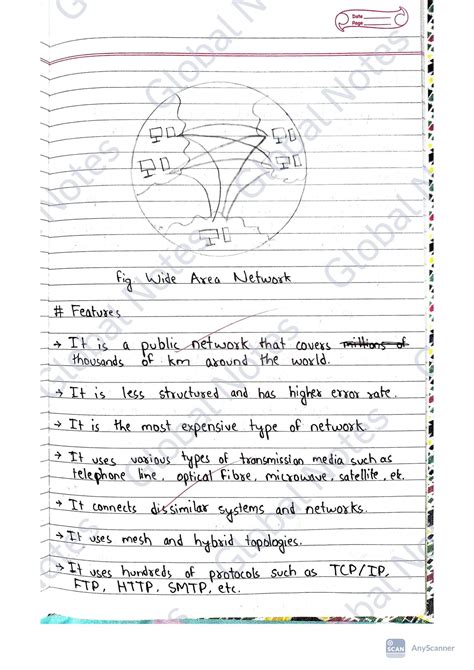 Date
Page
Global Notes
Global Notes
Global Notes
Global Notes
Global Notes
Global Notes
fig Wide Area Network
# Features
→ It is a public network that covers millions of
thousands of km around the world.
→ It is less structured and has higher error rate.
→ It is the most expensive type of network.
→ It uses various types of transmission media such as
telephone line, optical fibre, microwave, satellite, etc.
→ It connects dissimilar systems and networks.
→ It uses mesh and hybrid topologies.
→ It uses hundreds of protocols such as TCP/IP,
FTP, HTTP, SMTP, etc.
SCAN
AnyScanner